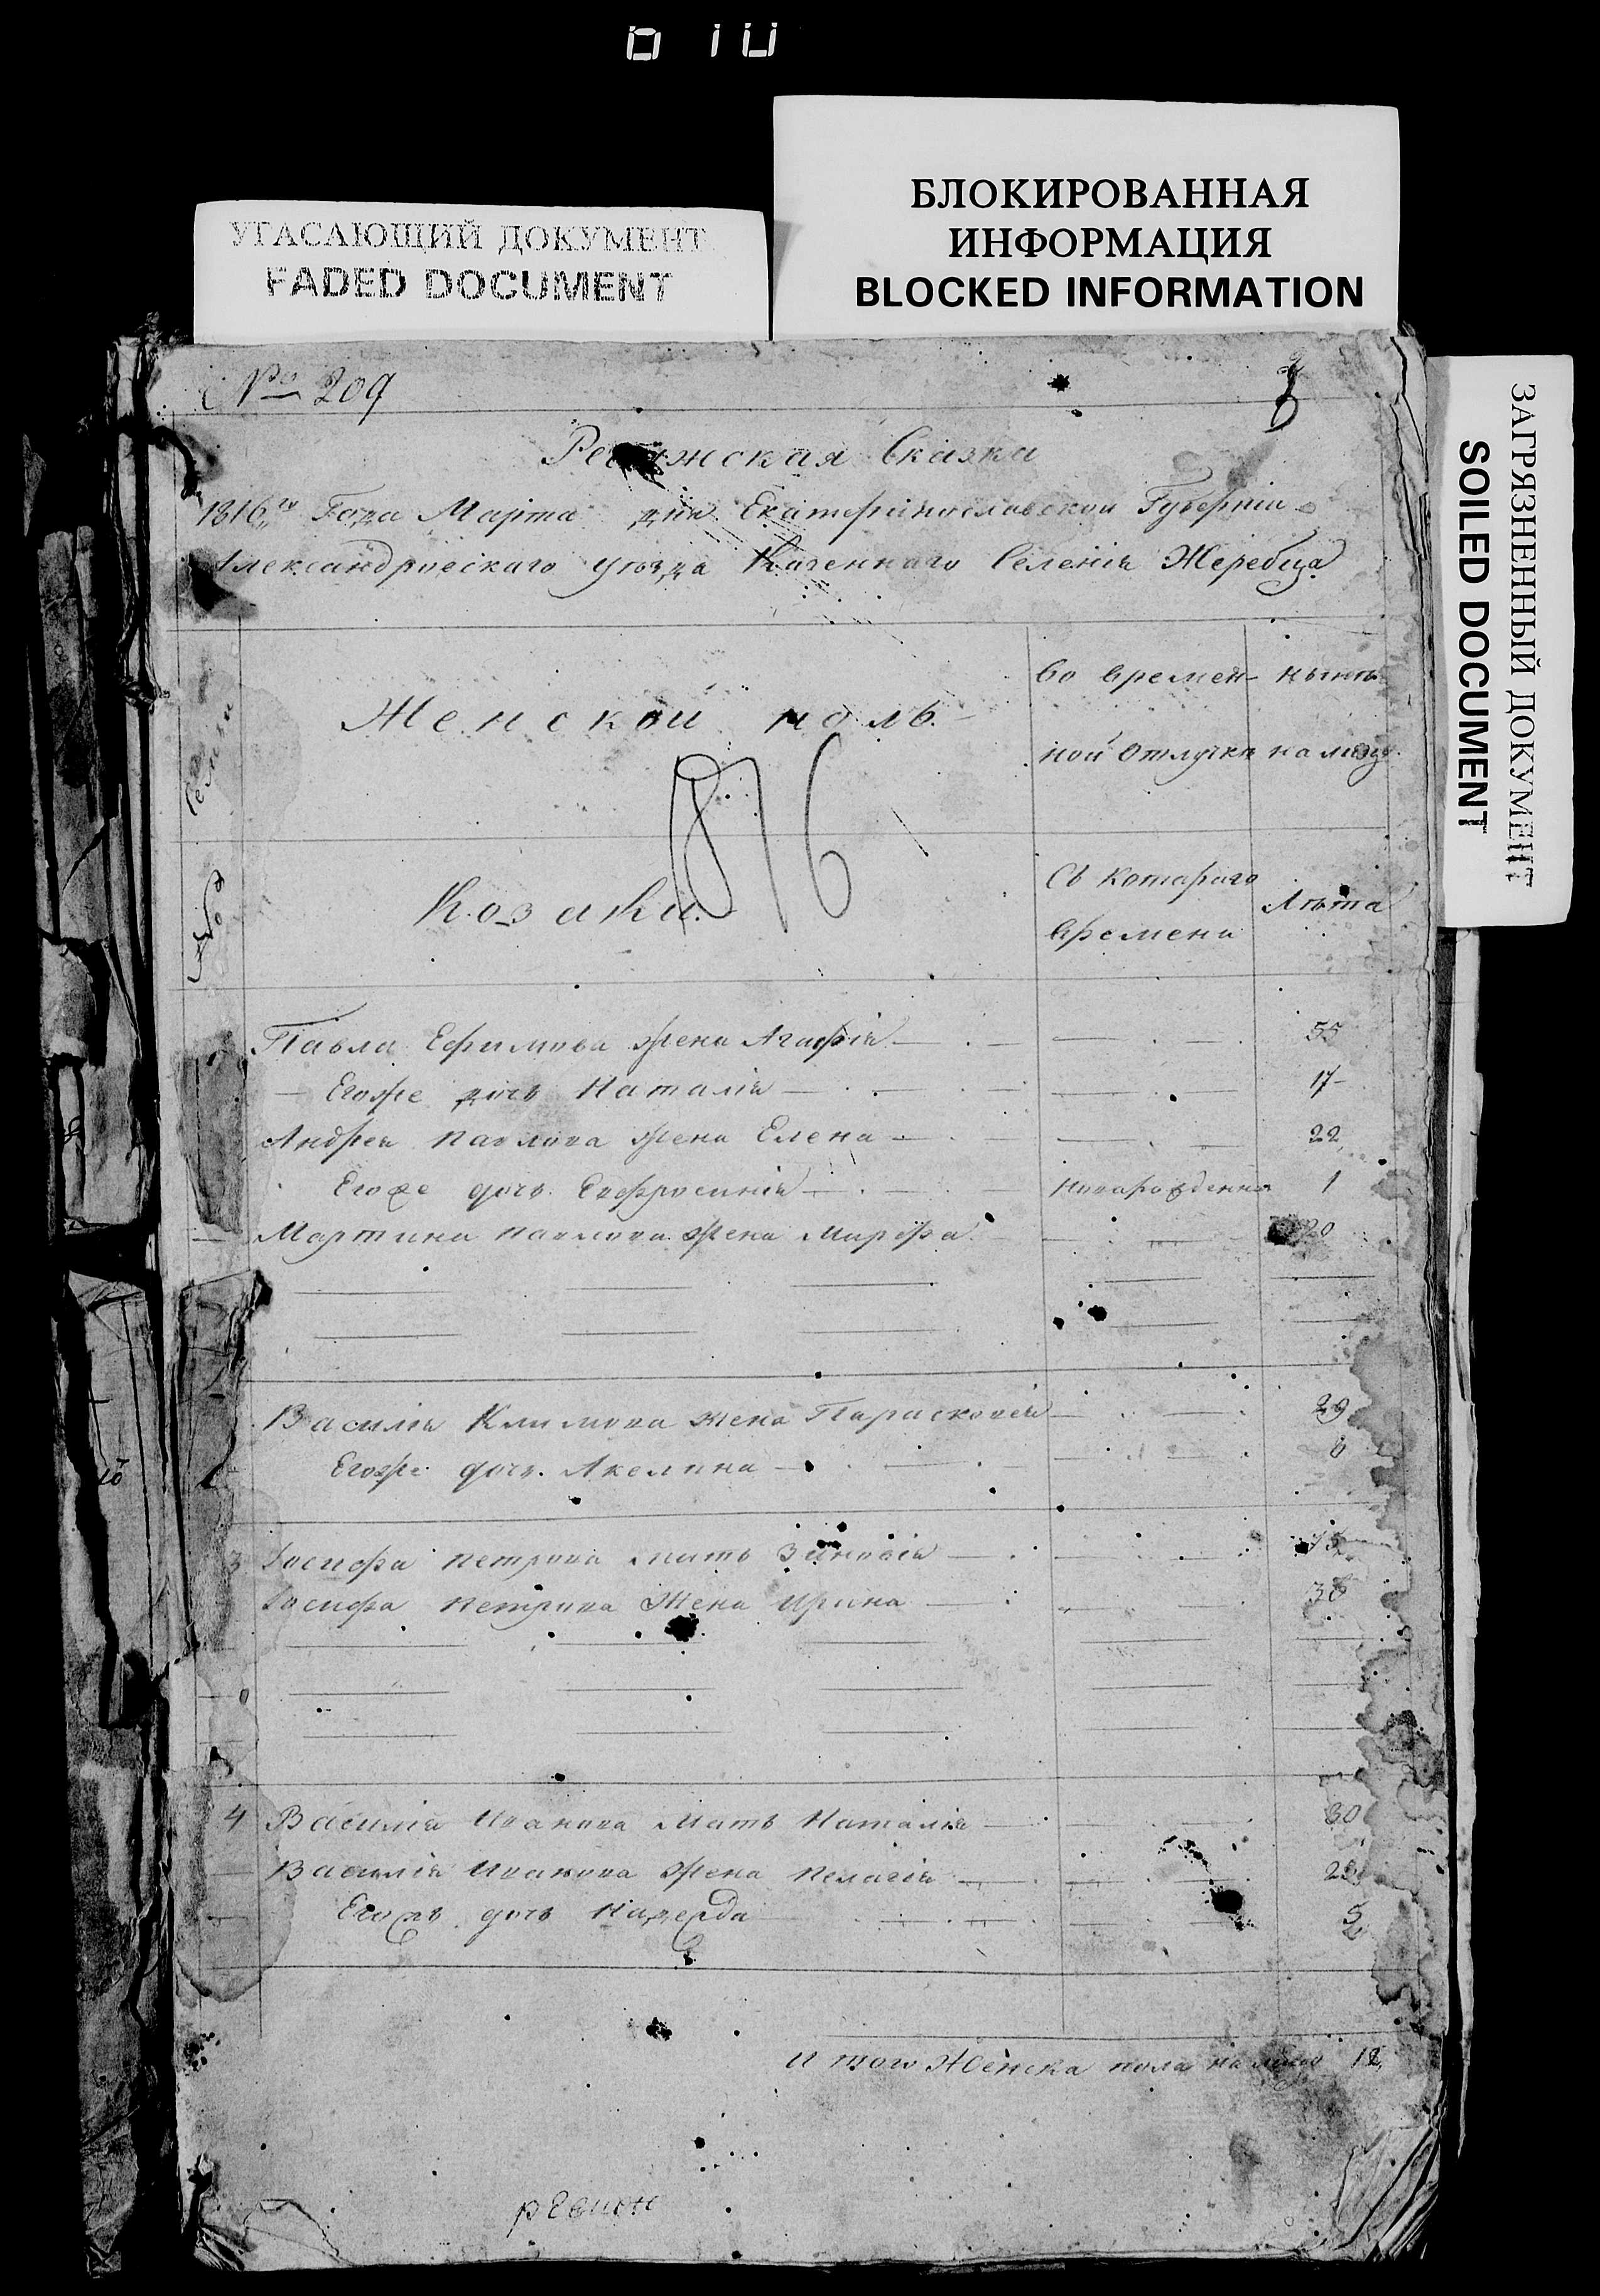 УГАСАЮЩИЙ ДОКУМЕНТ
FADED DOCUMENT
БЛОКИРОВАННАЯ
ИНФОРМАЦИЯ
BLOCKED INFORMATION
ЗАГРЯЗНЕННЫЙ ДОКУМЕНТ
SOILED DOCUMENT
№ 209
Ревижская Сказка
1816го Года Марта дня Екатеринославской Губерніи
Александрійскаго уѣзда Казеннаго Селенія Жеребца
Семьи
Женской полъ.
Во времен- нынѣ
ной отлучкѣ на лицо
816
№
Козаки.
Съ котораго
времени
Лѣта
Павла Ефимова жена Агафія 55
Егоже дочь Наталія 17
Андрея Павлова жена Елена 22
Егоже дочь Евфросинія новорожденна 1
Мартина Павлова жена Марфа 20
Василія Климова жена Парасковія 29
Егоже дочь Акелина
3 Іосифа Петрова мать Зиновія
Іосифа Петрова жена Ирина
4 Василія Иванова мать Наталія
Василія Иванова жена Пелагія
Егожъ дочь Надежда
Итого Женска пола на лицо 12
ревиж